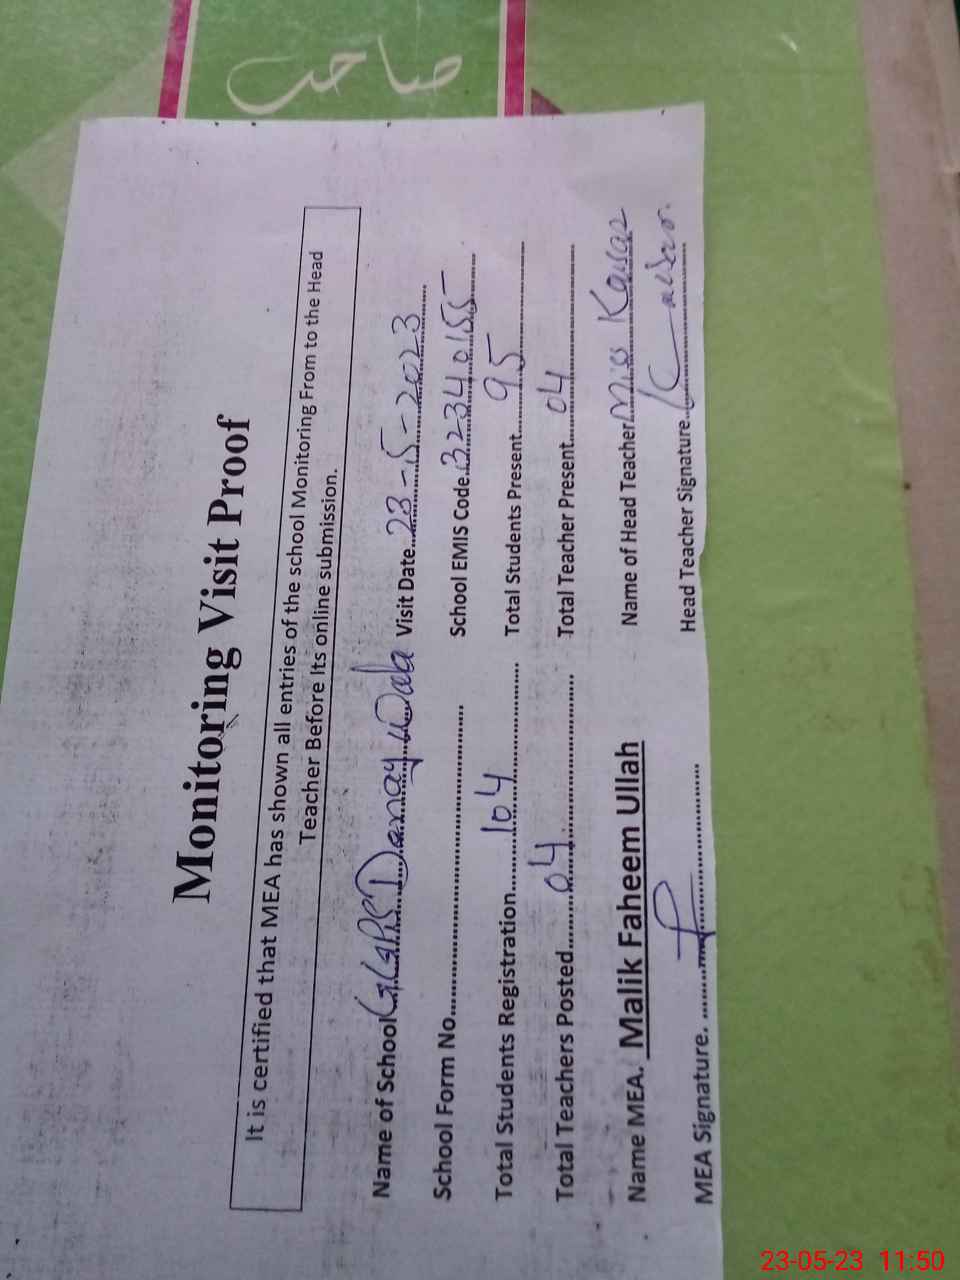 صاحب
Monitoring Visit Proof
It is certified that MEA has shown all entries of the school Monitoring From to the Head
Teacher Before Its online submission.
Name of School GGPS Danay Wala Visit Date 23-5-2023
School Form No. School EMIS Code 32340155
Total Students Registration 104 Total Students Present 95
Total Teachers Posted 04 Total Teacher Present 04
Name MEA. Malik Faheem Ullah Name of Head Teacher Miss Kausar
MEA Signature. Head Teacher Signature Kausar
23-05-23 11:50